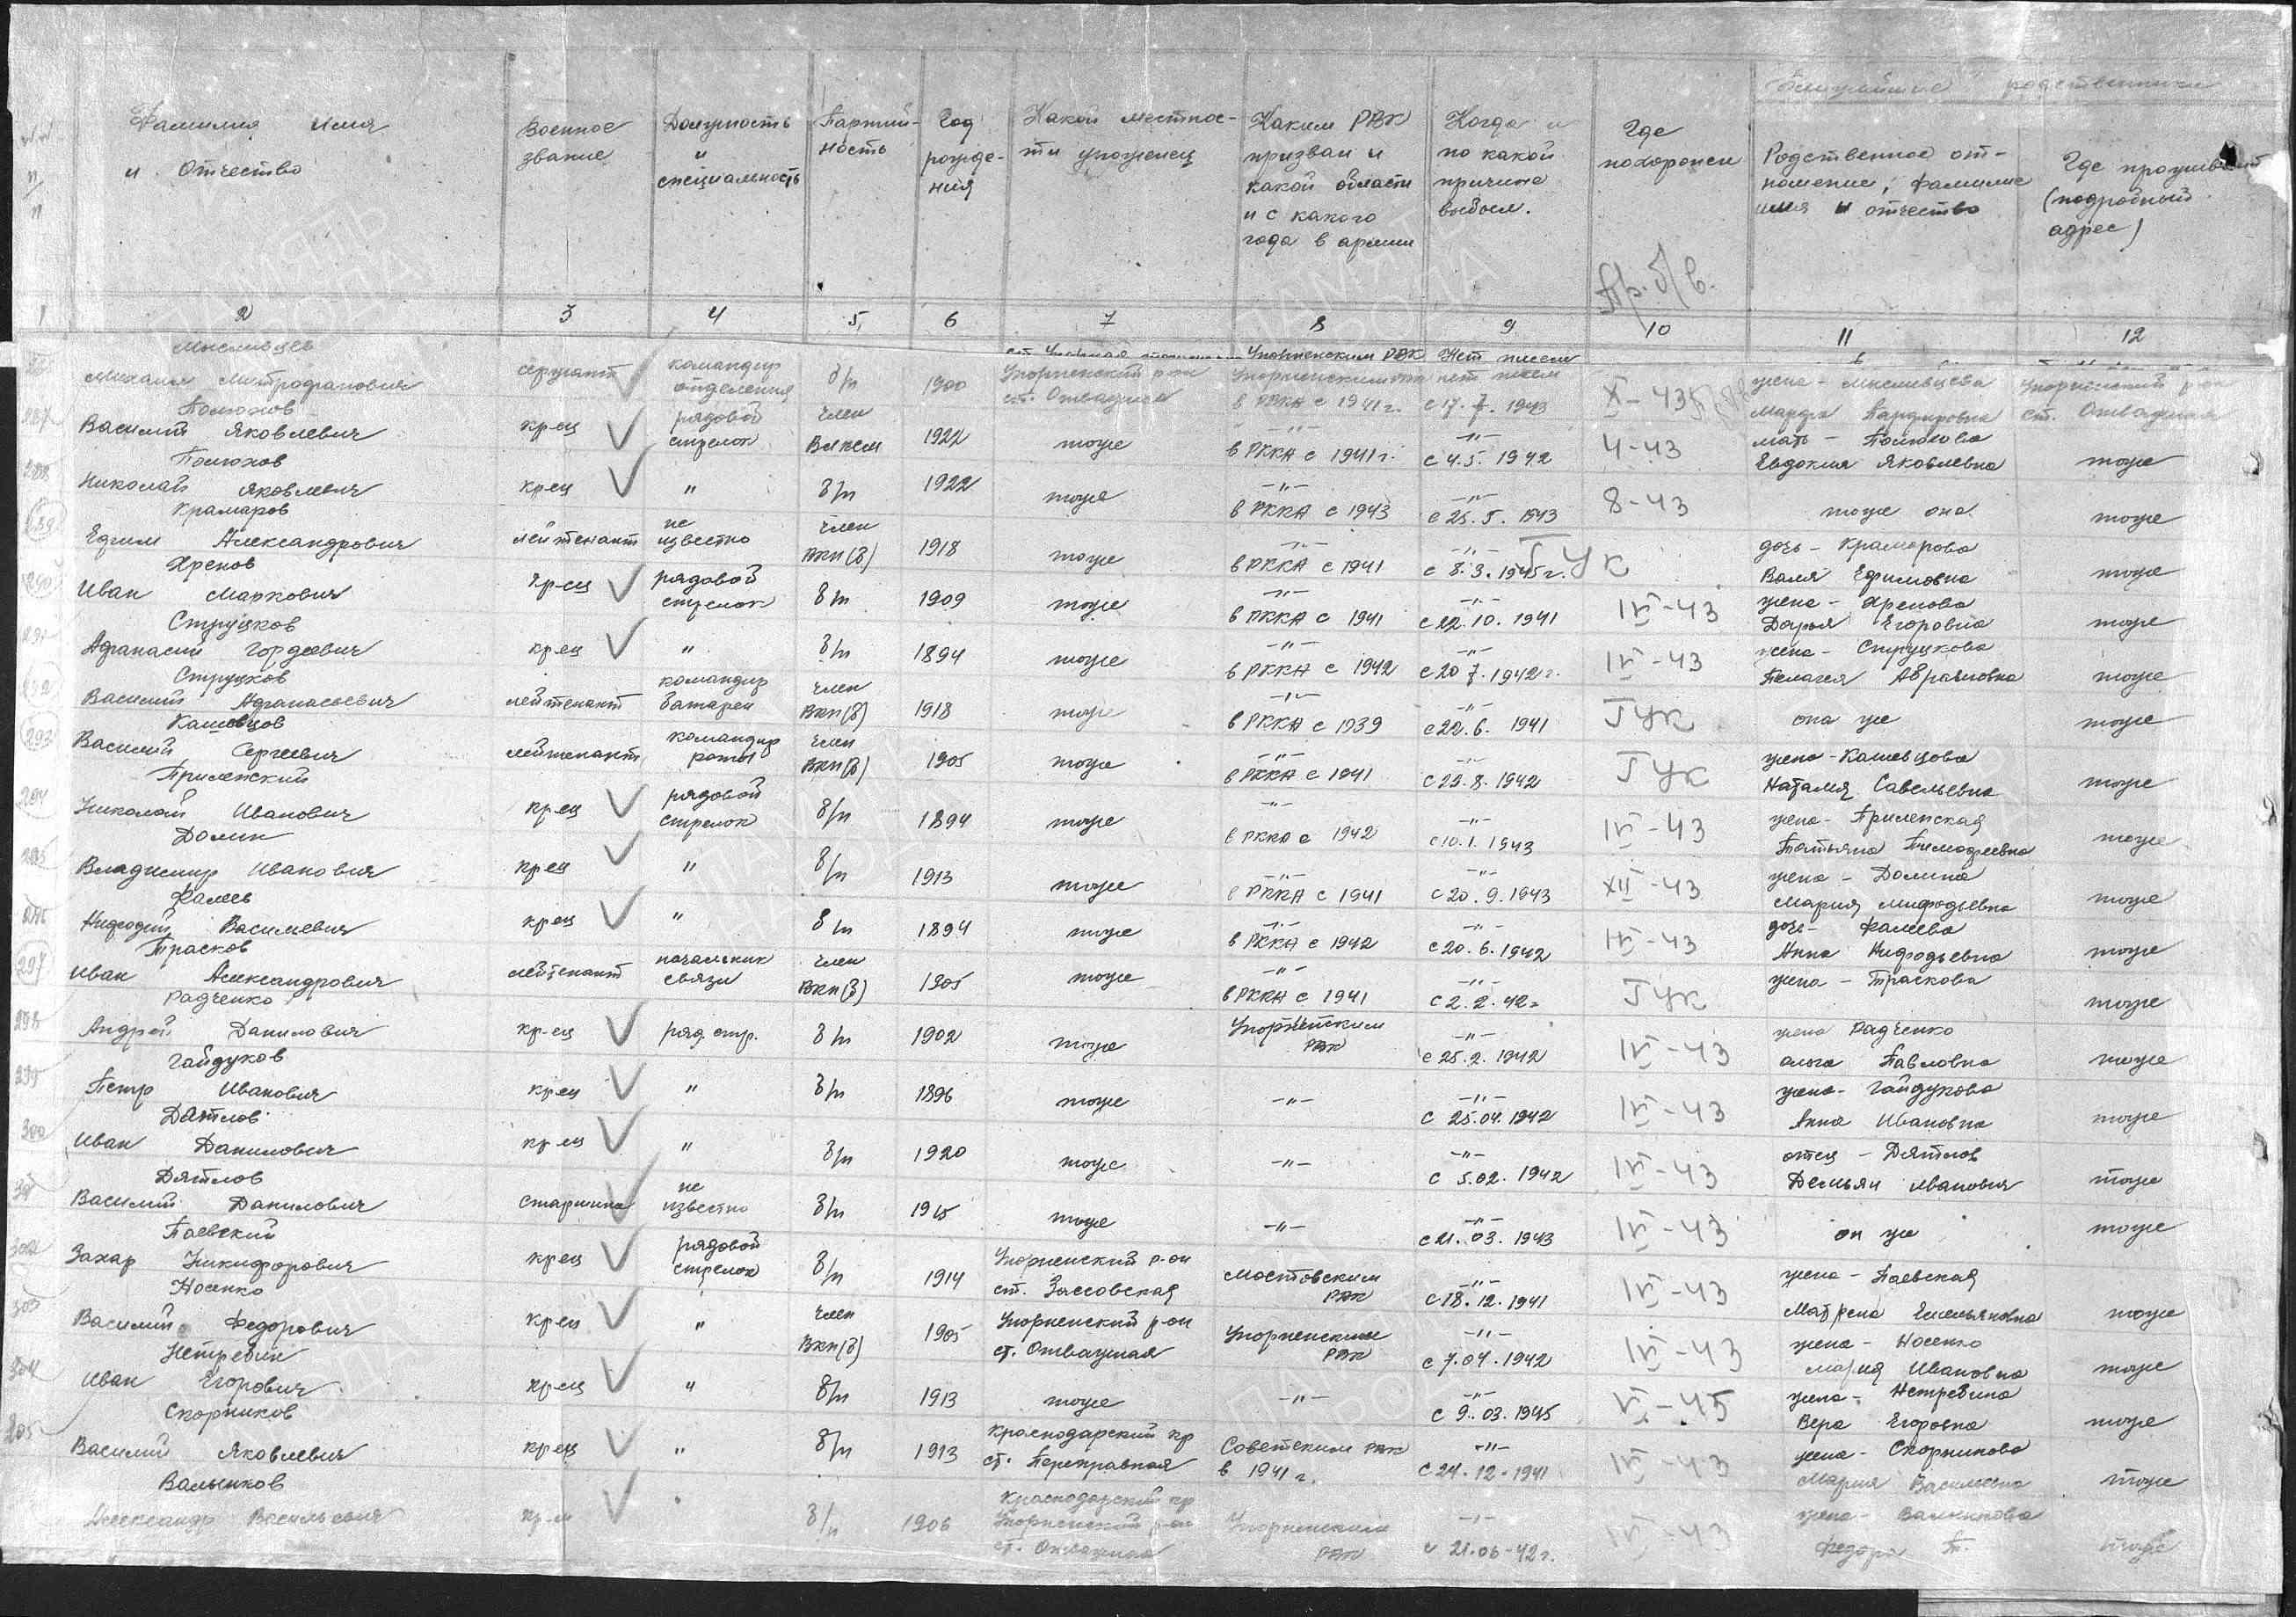 Ближайшие родственники
№№ п/п
Фамилия имя и отчество
Военное звание
Должность и специальность
Партий-ность
Год рожде-ния
Какой местнос-ти уроженец
Каким РВК призван и какой области и с какого года в армии
Когда и по какой причине выбыл.
Где похоронен
Родственное от-ношение, фамилия имя и отчество
Где проживает (подробный адрес)
Пр. б/в.
1 2 3 4 5 6 7 8 9 10 11 12
Мысливцев Михаил Митрофанович сержант командир отделения б/п 1900 Упорненский р-он ст. Отважная Упорненским РВК в РККА с 1941 г. нет писем с 17. 7. 1943 X-43 жена - Мысливцева Марфа Парфировна Упорненский р-он ст. Отважная
287 Полюхов Василий Яковлевич кр-ец рядовой стрелок член ВЛКСМ 1922 тоже -"- в РККА с 1941 г. -"- с 4.5. 1942 4-43 мать - Полюхова Евдокия Яковлевна тоже
288 Полюхов Николай Яковлевич кр-ец " б/п 1922 тоже -"- в РККА с 1943 -"- с 25. 5. 1943 8-43 тоже она тоже
289 Крамаров Ефим Александрович лейтенант не известно член ВКП(б) 1918 тоже -"- в РККА с 1941 -"- с 8.3.1945 г. ГУК дочь - Крамарова Валя Ефимовна тоже
290 Хренов Иван Маркович кр-ец рядовой стрелок б/п 1909 тоже -"- в РККА с 1941 -"- с 22.10. 1941 IV-43 жена - Хренова Дарья Егоровна тоже
291 Струцков Афанасий Гордеевич кр-ец " б/п 1894 тоже -"- в РККА с 1942 -"- с 20 7. 1942 г. IV-43 жена - Струцкова Пелагея Авраамовна тоже
292 Струцков Василий Афанасьевич лейтенант командир батареи член ВКП(б) 1918 тоже -"- в РККА с 1939 -"- с 22. 6. 1941 ГУК она же тоже
293 Кашевцов Василий Сергеевич лейтенант командир роты член ВКП(б) 1905 тоже -"- в РККА с 1941 -"- с 25. 8. 1942 ГУК жена - Кашевцова Наталия Савельевна тоже
294 Прилепский Николай Иванович кр-ец рядовой стрелок б/п 1894 тоже -"- в РККА с 1942 -"- с 10. 1. 1943 IV-43 жена - Прилепская Татьяна Тимофеевна тоже
295 Долин Владимир Иванович кр-ец " б/п 1913 тоже -"- в РККА с 1941 -"- с 20. 9. 1943 XII-43 жена - Долина Мария Мифодьевна тоже
296 Фалеев Нифодий Васильевич кр-ец " б/п 1894 тоже -"- в РККА с 1942 -"- с 20. 6. 1942 IV-43 дочь - Фалеева Анна Нифодьевна тоже
297 Трасков Иван Александрович лейтенант начальник связи член ВКП(б) 1905 тоже -"- в РККА с 1941 -"- с 2. 2. 42 г ГУК жена - Траскова тоже
298 Радченко Андрей Данилович кр-ец ряд. стр. б/п 1902 тоже Упорненским РВК -"- с 25. 2. 1942 IV-43 жена Радченко Ольга Павловна тоже
299 Гайдуков Петр Иванович кр-ец " б/п 1896 тоже -"- -"- с 25.04. 1942 IV-43 жена - Гайдукова Анна Ивановна тоже
300 Дятлов Иван Данилович кр-ец " б/п 1920 тоже -"- -"- с 5.02. 1942 IV-43 отец - Дятлов Демьян Иванович тоже
301 Дятлов Василий Данилович старшина не известно б/п 1915 тоже -"- -"- с 21. 03. 1943 IV-43 он же тоже
302 Паевский Захар Никифорович кр-ец рядовой стрелок б/п 1914 Упорненский р-он ст. Зассовская Мостовским РВК -"- с 18. 12. 1941 IV-43 жена - Паевская Матрена Емельяновна тоже
303 Носенко Василий Федорович кр-ец " член ВКП(б) 1905 Упорненский р-он ст. Отважная Упорненским РВК -"- с 7.04. 1942 IV-43 жена - Носенко Мария Ивановна тоже
304 Нетребин Иван Егорович кр-ец " б/п 1913 тоже -"- -"- с 9. 03. 1945 VI-45 жена - Нетребина Вера Егоровна тоже
305 Скорников Василий Яковлевич кр-ец " б/п 1913 Краснодарский кр ст. Переправная Советским РВК в 1941 г. -"- с 24. 12 - 1941 IV-43 жена - Скорникова Мария Васильевна тоже
Вальнков Александр Васильевич кр-ец " б/п 1906 Краснодарский кр Упорненский р-он ст. Отважная Упорненским РВК -"- с 21. 06 - 42 г. IV-43 жена - Федора П. тоже